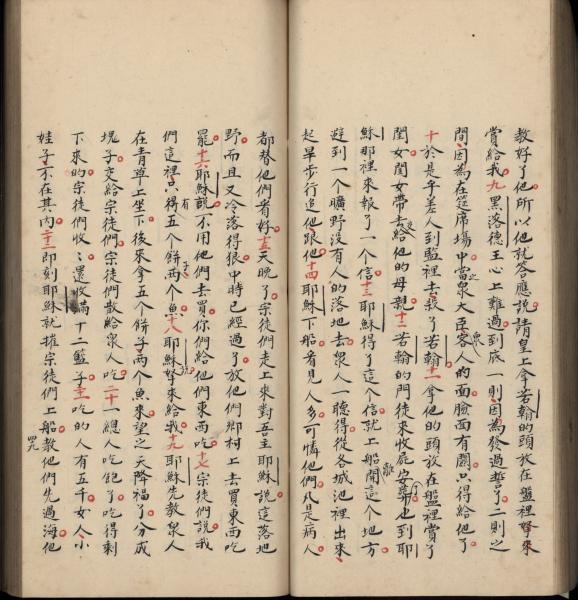 教好了他所以他就答應說請皇上拿若翰的頭放在盤裡拏來
賞給我九黑落德王心上難過到底一則因為發過誓了二則之
間因為在筵席場中當衆大臣客人的面臉面有關只得給他了
十於是乎差人到監裡去殺了若翰十一拿他的頭放在盤裡賞了
閨女閨女帶去給他的母親十二若翰的門徒來收屍安葬也到耶
穌那裡來報了一个信十三耶穌得了這个信就上船開這个地方
避到一个曠野沒有人的落地去衆人一聽得從各城池裡出來
起旱步行追他跟他十四耶穌下船看見人多可憐他們凡是病人
都替他們看好十五天晚了宗徒們走上來對吾主耶穌說這落地
野而且又冷落得狠中時已經過了放他們鄉村上去買東西吃
罷十六耶穌說不用他們去買你們給他們東西吃十七宗徒們說我
們這裡只有得五个餅兩个魚十八耶穌說拏來給我十九耶穌先教衆人
在青草上坐下後來拿五个餅子兩个魚來望之天降福了分成
塊子交給宗徒們宗徒們散給衆人吃二十一總人吃飽了吃得剩
下來的宗徒們收收還收滿十二籃子二十一吃的人有五千女人小
娃子不在其內二十二即刻耶穌就催宗徒們上船教他們先過海他